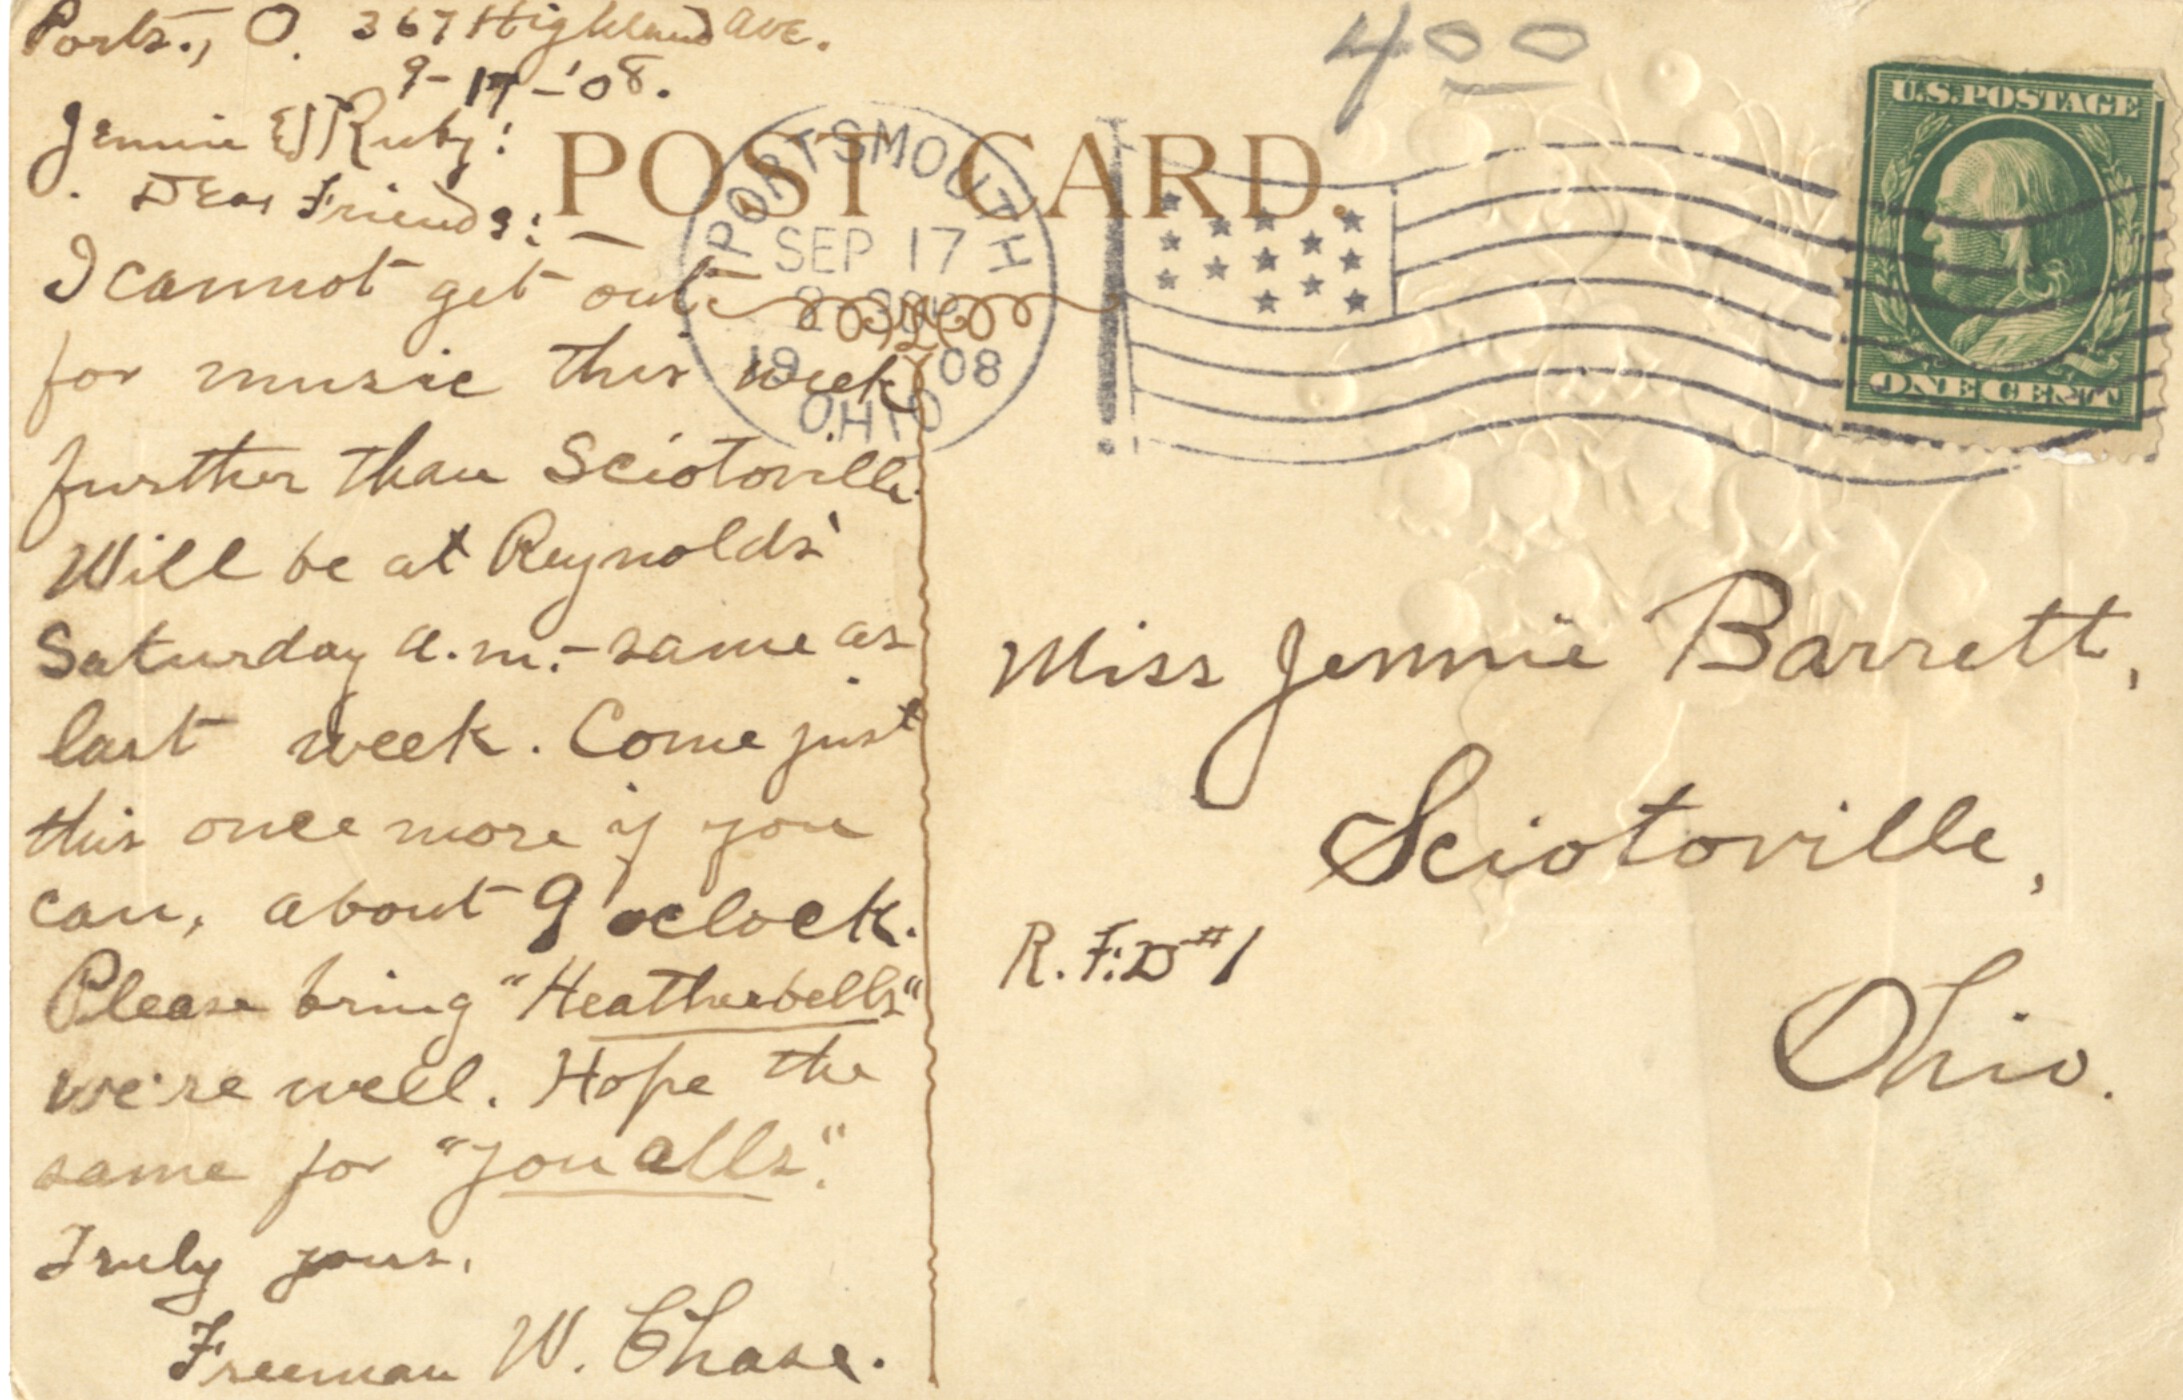 Ports., O. 367 Highland Ave.
9-17-'08.
Jennie & Ruby:
Dear Friends:—
I cannot get out
for music this week
further than Sciotoville.
Will be at Reynolds'
Saturday a.m.- same as
last week. Come just
this once more if you
can, about 9 oclock.
Please bring "Heatherbells"
we're well. Hope the
same for "you alls".
Truly yours,
Freeman W. Chase.
400
POST CARD.
PORTSMOUTH
SEP 17
1908
OHIO
U.S. POSTAGE
ONE CENT
Miss Jennie Barrett,
Sciotoville,
R.F.D #1
Ohio.